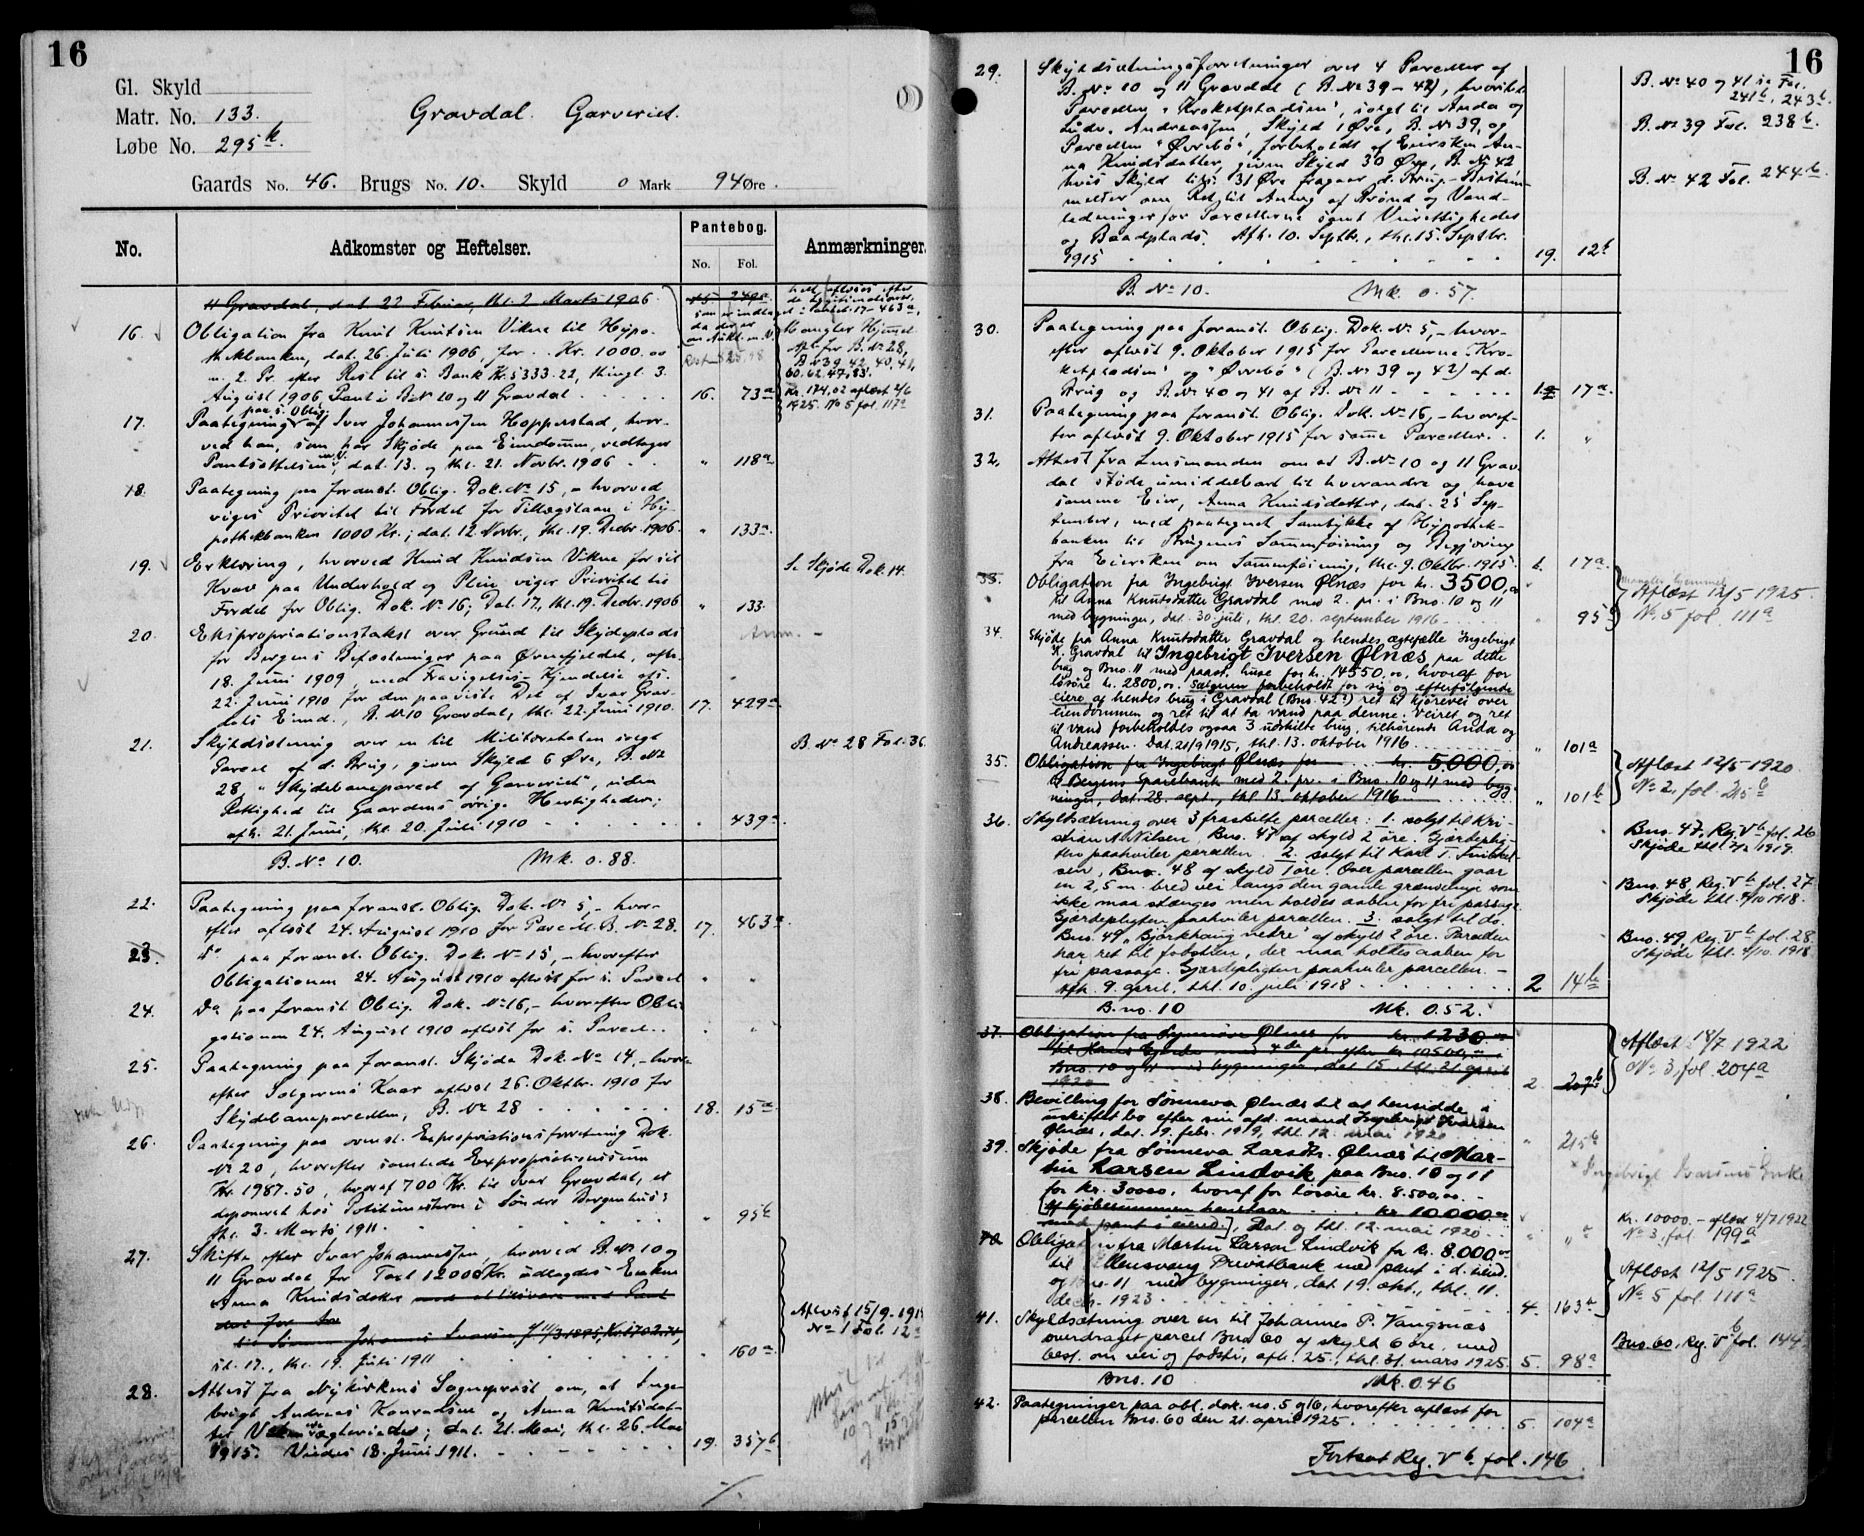 16
Gl. Skyld
Matr. No. 133.
Løbe No. 295 k.
Gravdal. Garveriet.
Gaards No. 46. Brugs No. 10. Skyld 0 Mark 94 Øre.
No.
Adkomster og Heftelser.
Pantebog.
No. Fol.
Anmærkninger.
11 Gravdal, dat 22 Februar, thl. 2 Marts 1906. 15 249a
16. Obligation fra Knut Knutsen Vikne til Hypo-
thekbanken, dat. 26. Juli 1906, for .. Kr. 1000.00
m. 2. Pr. efter Rest til s. Bank Kr. 5333.22, thingl. 3.
August 1906. Pant i B.No 10 og 11 Gravdal 16. 73a
Mangler Hjemmel
for B. No 28,
B. No 39, 42, 40, 41,
60. 62. 47, 83.
Kr. 174,02 aflæst 2/6
1925. No 5 fol. 117a
paa s. Oblig.
17. Paategning af Iver Johannessen Hopperstad, hvor-
ved han, som har Skjøde paa Eiendommen, vedtager
Pantsættelsen, dat. 13. og thl. 21. Novbr. 1906 " 118a
18. Paategning paa foranst. Oblig. Dok. No 15, - hvorved
viges Prioritet til Fordel for Tillægslaan i Hy-
pothekbanken 1000 Kr.; dat. 12. Novbr., thl. 19. Decbr. 1906. " 133a
19. Erklæring, hvorved Knud Knudsen Vikne for sit
Krav paa Underhold og Pleie viger Prioritet til
Fordel for Oblig. Dok. No 16; Dat. 17., thl. 19. Decbr. 1906 " 133.
Se Skjøde Dok. 14.
20. Ekspropriationstakst over Grund til Skydeplads
for Bergens Befæstninger paa Øvrefjeldet, afh.
18. Juni 1909, med Fravigelses-Kjendelse afs.
22. Juni 1910 for den paaviste Del af Ivar Grav-
dals Eiend., B. No 10 Gravdal, thl. 22. Juni 1910. 17. 429a
Anm. -
21. Skyldsætning over en til Militæretaten solgt
Parcel af d. Brug, given Skyld 6 Øre, B. No
28, "Skydebaneparcel af Garveriet", uden
Rettighed til Gaardens øvrige Herligheder;
afh. 21. Juni, thl. 20. Juli 1910 " 439a
B. No 28 Fol. 36
B. No 10. Mk. 0.88.
22. Paategning paa foranst. Oblig. Dok. No 5, - hvor-
efter aflæst 24. August 1910 for Parcel B. No 28. 17. 463a
23. do paa foranst. Oblig. Dok. No 15, - hvorefter
Obligationen 24. August 1910 aflæst for s. Parcel " "
24. Do paa foranst. Oblig. Dok. No 16, - hvorefter Obli-
gationen 24. August 1910 aflæst for s. Parcel. " "
25. Paategning paa foranst. Skjøde Dok. No 14, - hvor-
efter Sælgerens Kaar aflæst 26. Oktbr. 1910 for
Skydebaneparcellen, B. No 28 18. 15a
26. Paategning paa ovenst. Expropriationsforretning Dok.
No 20, hvorefter samtlede Expropriationssum
Kr. 1987.50, hvoraf 700 Kr. til Ivar Gravdal, er
deponeret hos Politimesteren i Søndre Bergenhus;
thl. 3. Marts 1911. " 95b
27. Skifte efter Ivar Johannessen, hvorved B. No 10 og
11 Gravdal for Taxt 12000 Kr. udlagdes Enken
Anna Knudsdatter
dat. 17., thl. 19. Juli 1911 " 160a
Aflæst 15/9-1915
No 1 Fol. 12a
28. Attest fra Nykirkens Sogneprest om, at Inge-
brigt Andreas Konradsen og Anna Knutsdat-
ter Vikne ere ægteviede; dat. 21. Mai, thl. 26. Mai
1915. Viedes 18. Juni 1911. 19. 357b
16
29. Skyldsætningsforretninger over 4 Parceller af
B. No 10 og 11 Gravdal (B. No 39-42), hvoraf
Parcellen "Kroketpladsen", solgt til Anda og
Ludv. Andreassen, Skyld 1 Øre, B. No 39, og
Parcellen "Øvrebø", forbeholdt af Eiersken An-
na Knudsdatter, given Skyld 30 Øre, B. No 42
hvis Skyld tils. 31 Øre fragaar d. Brug. - Bestem-
melser om Ret til Anlæg af Brønd og Vand-
ledninger for Parcellerne samt Veirettigheder
og Baadplads. Afh. 10. Septbr., thl. 15. Septbr.
1915 19. 12b
B. No 40 og 41 se Fol.
241b, 243b.
B. No 39 Fol. 238b.
B. No 42 Fol. 244b.
B. No 10. Mk. 0.57.
30. Paategning paa foranst. Oblig. Dok. No 5, - hvor-
efter aflæst 9. Oktober 1915 for Parcellerne "Kro-
ketpladsen" og "Øvrebø" (B. No 39 og 42) af d.
Brug og B. No 40 og 41 af B. No 11 1. 17a.
31. Paategning paa foranst. Oblig. Dok. No 16, - hvoref-
ter aflæst 9. Oktober 1915 for samme Parceller. 1. "
32. Attest fra Lensmanden om at B. No 10 og 11 Grav-
dal støde umiddelbart til hverandre og have
samme Eier, Anna Knudsdatter, dat. 25 Sep-
tember, med paategnet Samtykke af Hypothek-
banken til Brugenes Sammenføining og Begjæring
fra Eiersken om Sammenføining, thl. 9. Oktbr. 1915. 1. 17a.
33. Obligation fra Ingebrigt Iversen Ølnæs for kr. 3500,00
til Anna Knutsdatter Gravdal med 2. pr. i Bno. 10 og 11
med bygninger, dat. 30. juli, thl. 20. september 1916 " 95a
Mangler hjemmel
Aflæst 12/5 1925.
No 5 fol. 111a
34. Skjøde fra Anna Knutsdatter Gravdal og hendes ægtefælle Ingebrigt
K. Gravdal til Ingebrigt Iversen Ølnæs paa dette
brug og Bno. 11 med paast. huse for kr. 14550,00, hvoraf for
løsøre kr. 2800,00. Sælgeren forbeholdt for sig og efterfølgende
eiere af hendes brug i Gravdal (Bno. 42?) ret til kjørevei over
eiendommen og ret til at ta vand paa denne. Veiret og ret
til vand forbeholdes ogsaa 3 udskilte brug, tilhørende Anda og
Andreassen. Dat. 21/9 1915, thl. 13. oktober 1916 " 101a
35. Obligation fra Ingebrigt Ølnæs for kr. 5000,00
til Bergens Sparebank med 2. pr. i Bno. 10 og 11 med byg-
ninger, dat. 28. sept., thl. 13. oktober 1916 " 101b
Aflæst 12/5 1920
No 2, fol. 215b
36. Skyldsætning over 3 fraskilte parceller: 1. solgt til Kri-
stian A. Nilsen Bno. 47 af skyld 2 øre. Gjærdeplig-
ten paahviler parcellen. 2. solgt til Karl T.
sen, Bno. 48 af skyld 1 øre. Over parcellen gaar
en 2,5 m. bred vei langs den gamle grænselinje som
ikke maa stænges men holdes aaben for fri passage.
Gjærdepligten paahviler parcellen. 3. solgt til do
Bno. 49 "Bjørkhaug nedre" af skyld 2 øre. Parcellen
har ret til fodsti, der maa holdes aaben for
fri passage. Gjærdepligten paahviler parcellen. -
Afh. 9. april, thl. 10. juli 1918 2 14b
Bno. 47, Reg. Vb fol. 26
Bno. 48, Reg. Vb fol. 27
Skjøde thl. 4/10 1918.
Bno. 49, Reg. Vb fol. 28.
Skjøde thl. 4/10. 1918
B. no. 10 Mk. 0.52.
37. Obligation fra Ølnæs for kr. 1230
Bno. 10 og 11 med bygninger, dat 15. thl. 21 april
1920 2. 207b
Aflæst 14/7 1922
No 3, fol. 204a
38. Bevilling for Sønneva Ølnæs til at hensidde i
uskiftet bo efter sin afd. mand Ingebrigt Ivarsen
Ølnæs, dat. 19. febr. 1919, thl. 12. mai 1920 " 215b
39. Skjøde fra Sønneva Larsdtr. Ølnæs* til Mar-
tin Larsen Lindvik paa Bno. 10 og 11
for kr. 30000, hvoraf for løsøre kr. 8.500,00. -
[Af kjøbesummen henstaar kr. 10000.00
med pant i eiend.], Dat. og thl. 12. mai 1920 " "
* Ingebrigt Ivarsens Enke
Kr. 10000.- aflæst 4/7 1922
No 3, fol. 199a
40. Obligation fra Martin Larsen Lindvik for kr. 8.000,00
til Ullensvang Privatbank med pant i d. eiend.
og Bno. 11 med bygninger, dat. 19. okt., thl. 11.
decbr. 1923 4. 163a
Aflæst 12/5 1925.
No 5 fol. 111a
41. Skyldsætning over en til Johannes P. Vangsnæs
overdraget parcel Bno. 60 af skyld 6 øre, med
best. om vei og fodsti, afh. 25., thl. 31. mars 1925. 5. 98a
Bno. 60, Reg. Vb fol. 144
Bno. 10 Mk. 0.46
42. Paategninger paa obl. dok. no. 5 og 16, hvorefter aflæst for
parcellen Bno. 60 den 21. april 1925. 5. 104a
Fortsat Reg. Vb. fol. 146.